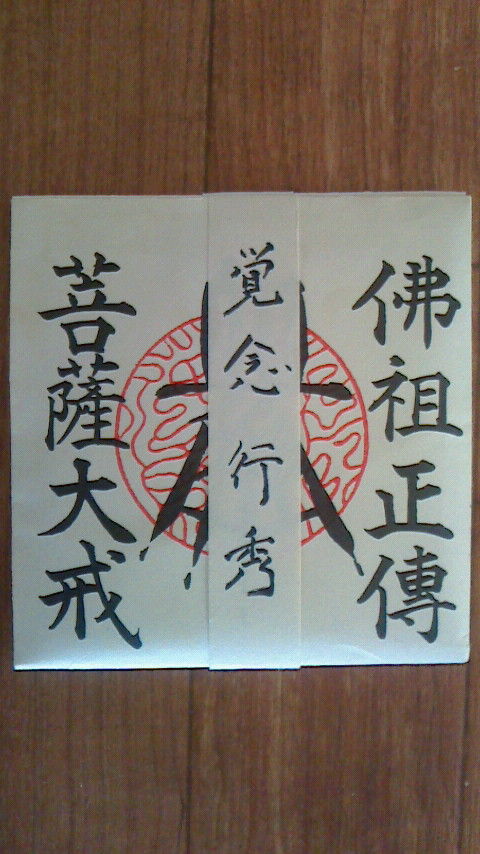 佛祖正傳
覚念行秀
菩薩大戒